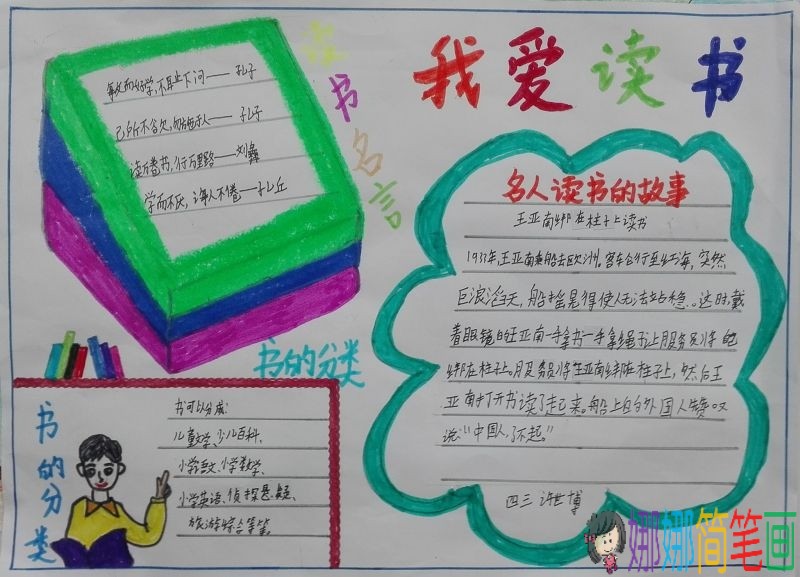 我爱读书
读书名言
敏而好学,不耻下问——孔子
己所不欲,勿施于人——孔子
读万卷书,行万里路——刘彝
学而不厌,诲人不倦——孔丘
名人读书的故事
王亚南绑在柱子上读书
1933年,王亚南乘船去欧洲。客轮行至红海,突然
巨浪滔天,船摇晃得使人无法站稳。这时,戴
着眼镜的王亚南一手拿书一手拿绳子让服务员将他
绑在柱子上。服务员将王亚南绑在柱子上,然后王
亚南打开书读了起来。船上的外国人赞叹
说:“中国人,了不起。”
四三 许世博
书的分类
书的分类
书可以分成:
儿童文学、少儿百科、
小学语文、小学数学、
小学英语、侦探悬疑、
旅游综合等等。
娜娜简笔画